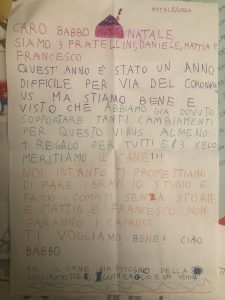 NATALE/2020
CARO BABBO NATALE
SIAMO 3 FRATELLINI, DANIELE, MATTIA E
FRANCESCO
QUEST'ANNO E' STATO UN ANNO
DIFFICILE PER VIA DEL CORONAVI
US MA STIAMO BENE E
VISTO CHE ABBIAMO GIA DOVUTO
SOPPORTARE TANTI CAMBIAMENTI
PER QUESTO VIRUS ALMENO
1 REGALO PER TUTTI E 3 CE LO
MERITIAMO IL CANE!!!
NOI INTANTO TI PROMETTIAMO
DI FARE I BRAVI IO STUDIO E
FACCIO COMPITI SENZA STORIE
E MATTIA E FRANCESCO NON
FARANNO I CAPRICCI
TI VOGLIAMO BENE! CIAO
BABBO
P.S. IL CANE HA BISOGNO DELLA
GUINZAGLIO E UN